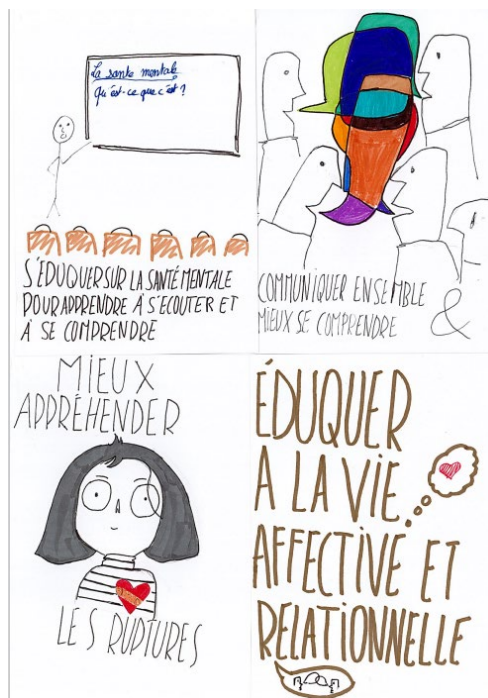 La sante mentale
Qu'est-ce que c'est ?
S'ÉDUQUER SUR LA SANTÉ MENTALE
POUR APPRENDRE À S'ECOUTER ET
À SE COMPRENDRE
COMMUNIQUER ENSEMBLE &
MIEUX SE COMPRENDRE
MIEUX
APPRÉHENDER
LES RUPTURES
ÉDUQUER
A LA VIE
AFFECTIVE ET
RELATIONNELLE